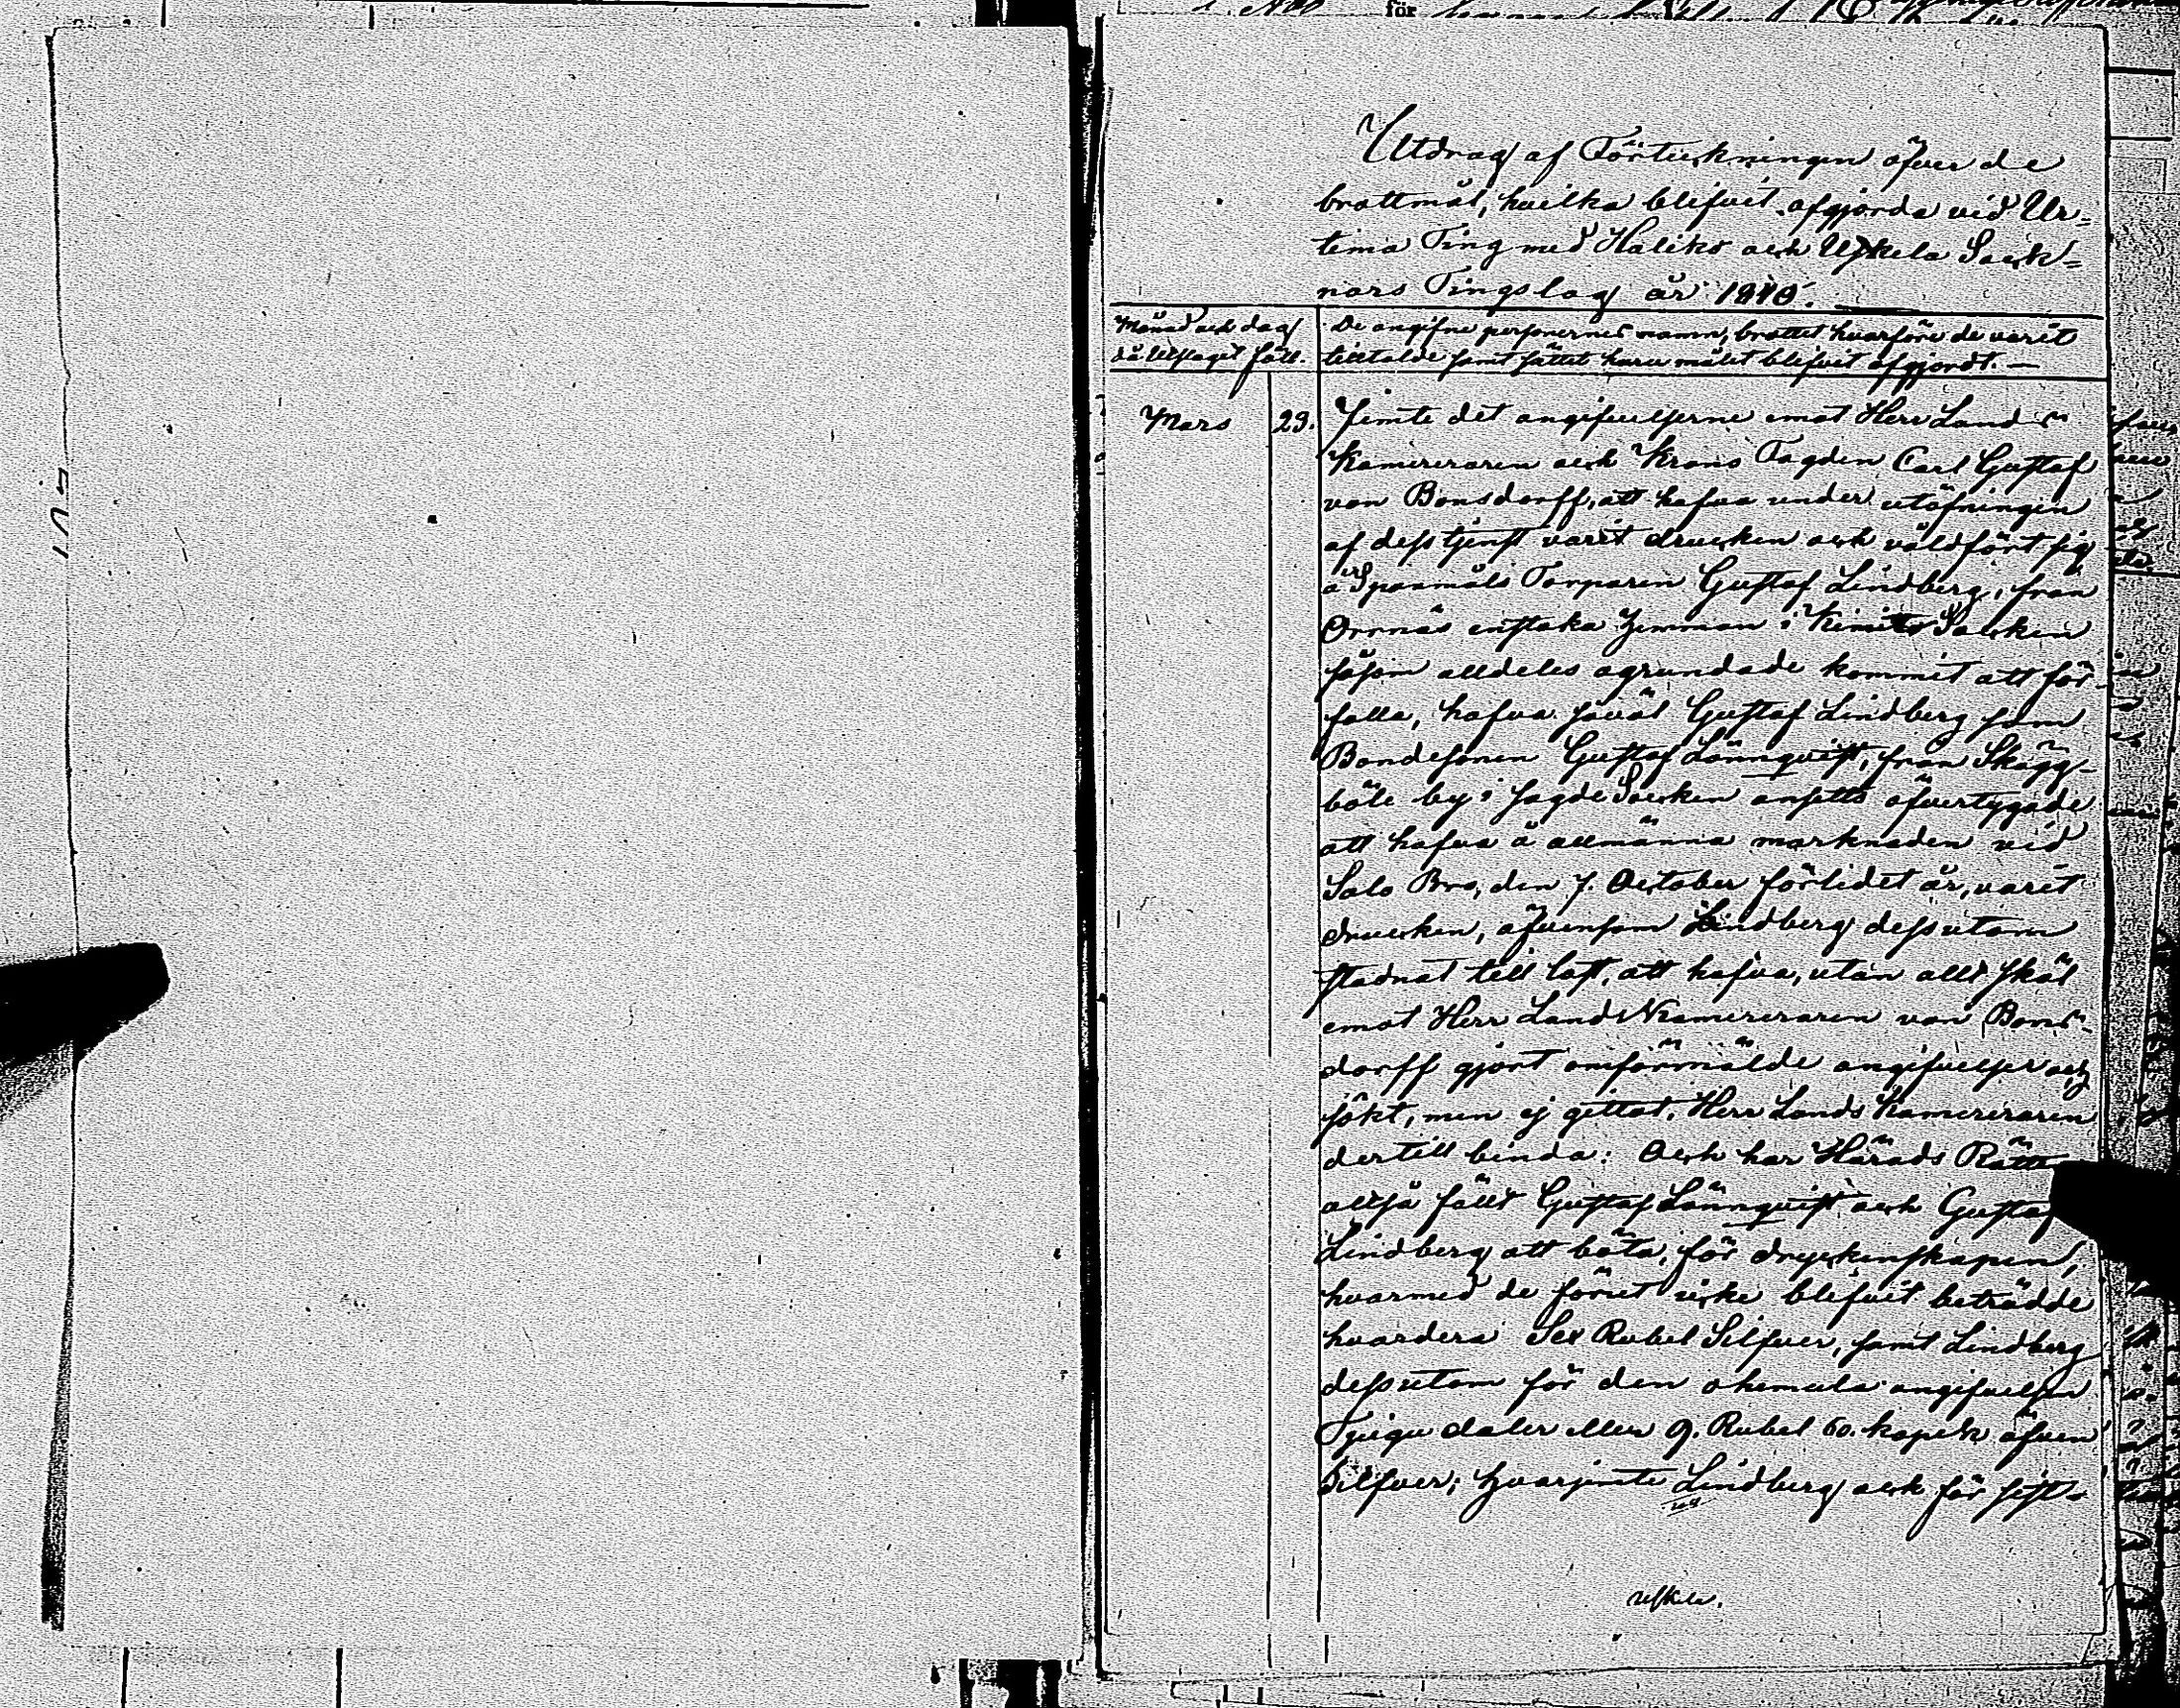 Utdrag af Förteckningen öfver de
brottmål, hvilka blifvit afgjorda vid Ur=
tima Ting med Haliko och Uskela Sock=
nars Tingslag år 1840.
Månad och dag De angifne personernes namn, brottet hvarföre de varit
då Utslaget föll. tilltalde samt sättet huru målet blifvit afgjordt. —
Mars 23. Jemte det angifvelserne emot Herr Lands
Kamereraren och Krono Fogden Carl Gustaf
von Bonsdorff, att hafva under utöfningen
af dess tjenst varit drucken och våldfört sig
å Spanmåls Torparen Gustaf Lindberg, från
Orrnäs enstaka hemman i Kimito Socken
såsom alldeles ogrundade kommit att för-
falla, hafva såväl Gustaf Lindberg som
Bondesonen Gustaf Lönnqvist, från Skägg-
böle by i sagde Socken ansetts öfvertygade
att hafva å allmänna marknaden vid
Salo Bro, den 7. October förlidet år, varit
drucken, äfvensom Lindberg dessutom
stadnat till last, att hafva, utan allt skäl
emot Herr Lands Kamereraren von Bons-
dorff gjort omförmälde angifvelser och
sökt, men ej gittat, Herr Lands Kamereraren
dertill binda: Och har Härads Rätten
alltså fällt Gustaf Lönnqvist och Gustaf
Lindberg att böta, för dryckenskapen,
hvarmed de förut icke blifvit beträdde
hvardera Sex Rubel Silfver, samt Lindberg
dessutom för den ohemula angifvelsen
Tjugu daler eller 9. Rubel 60. kopek äfven
Silfver; hvarjemte Lindberg och för sist-
Uskela.